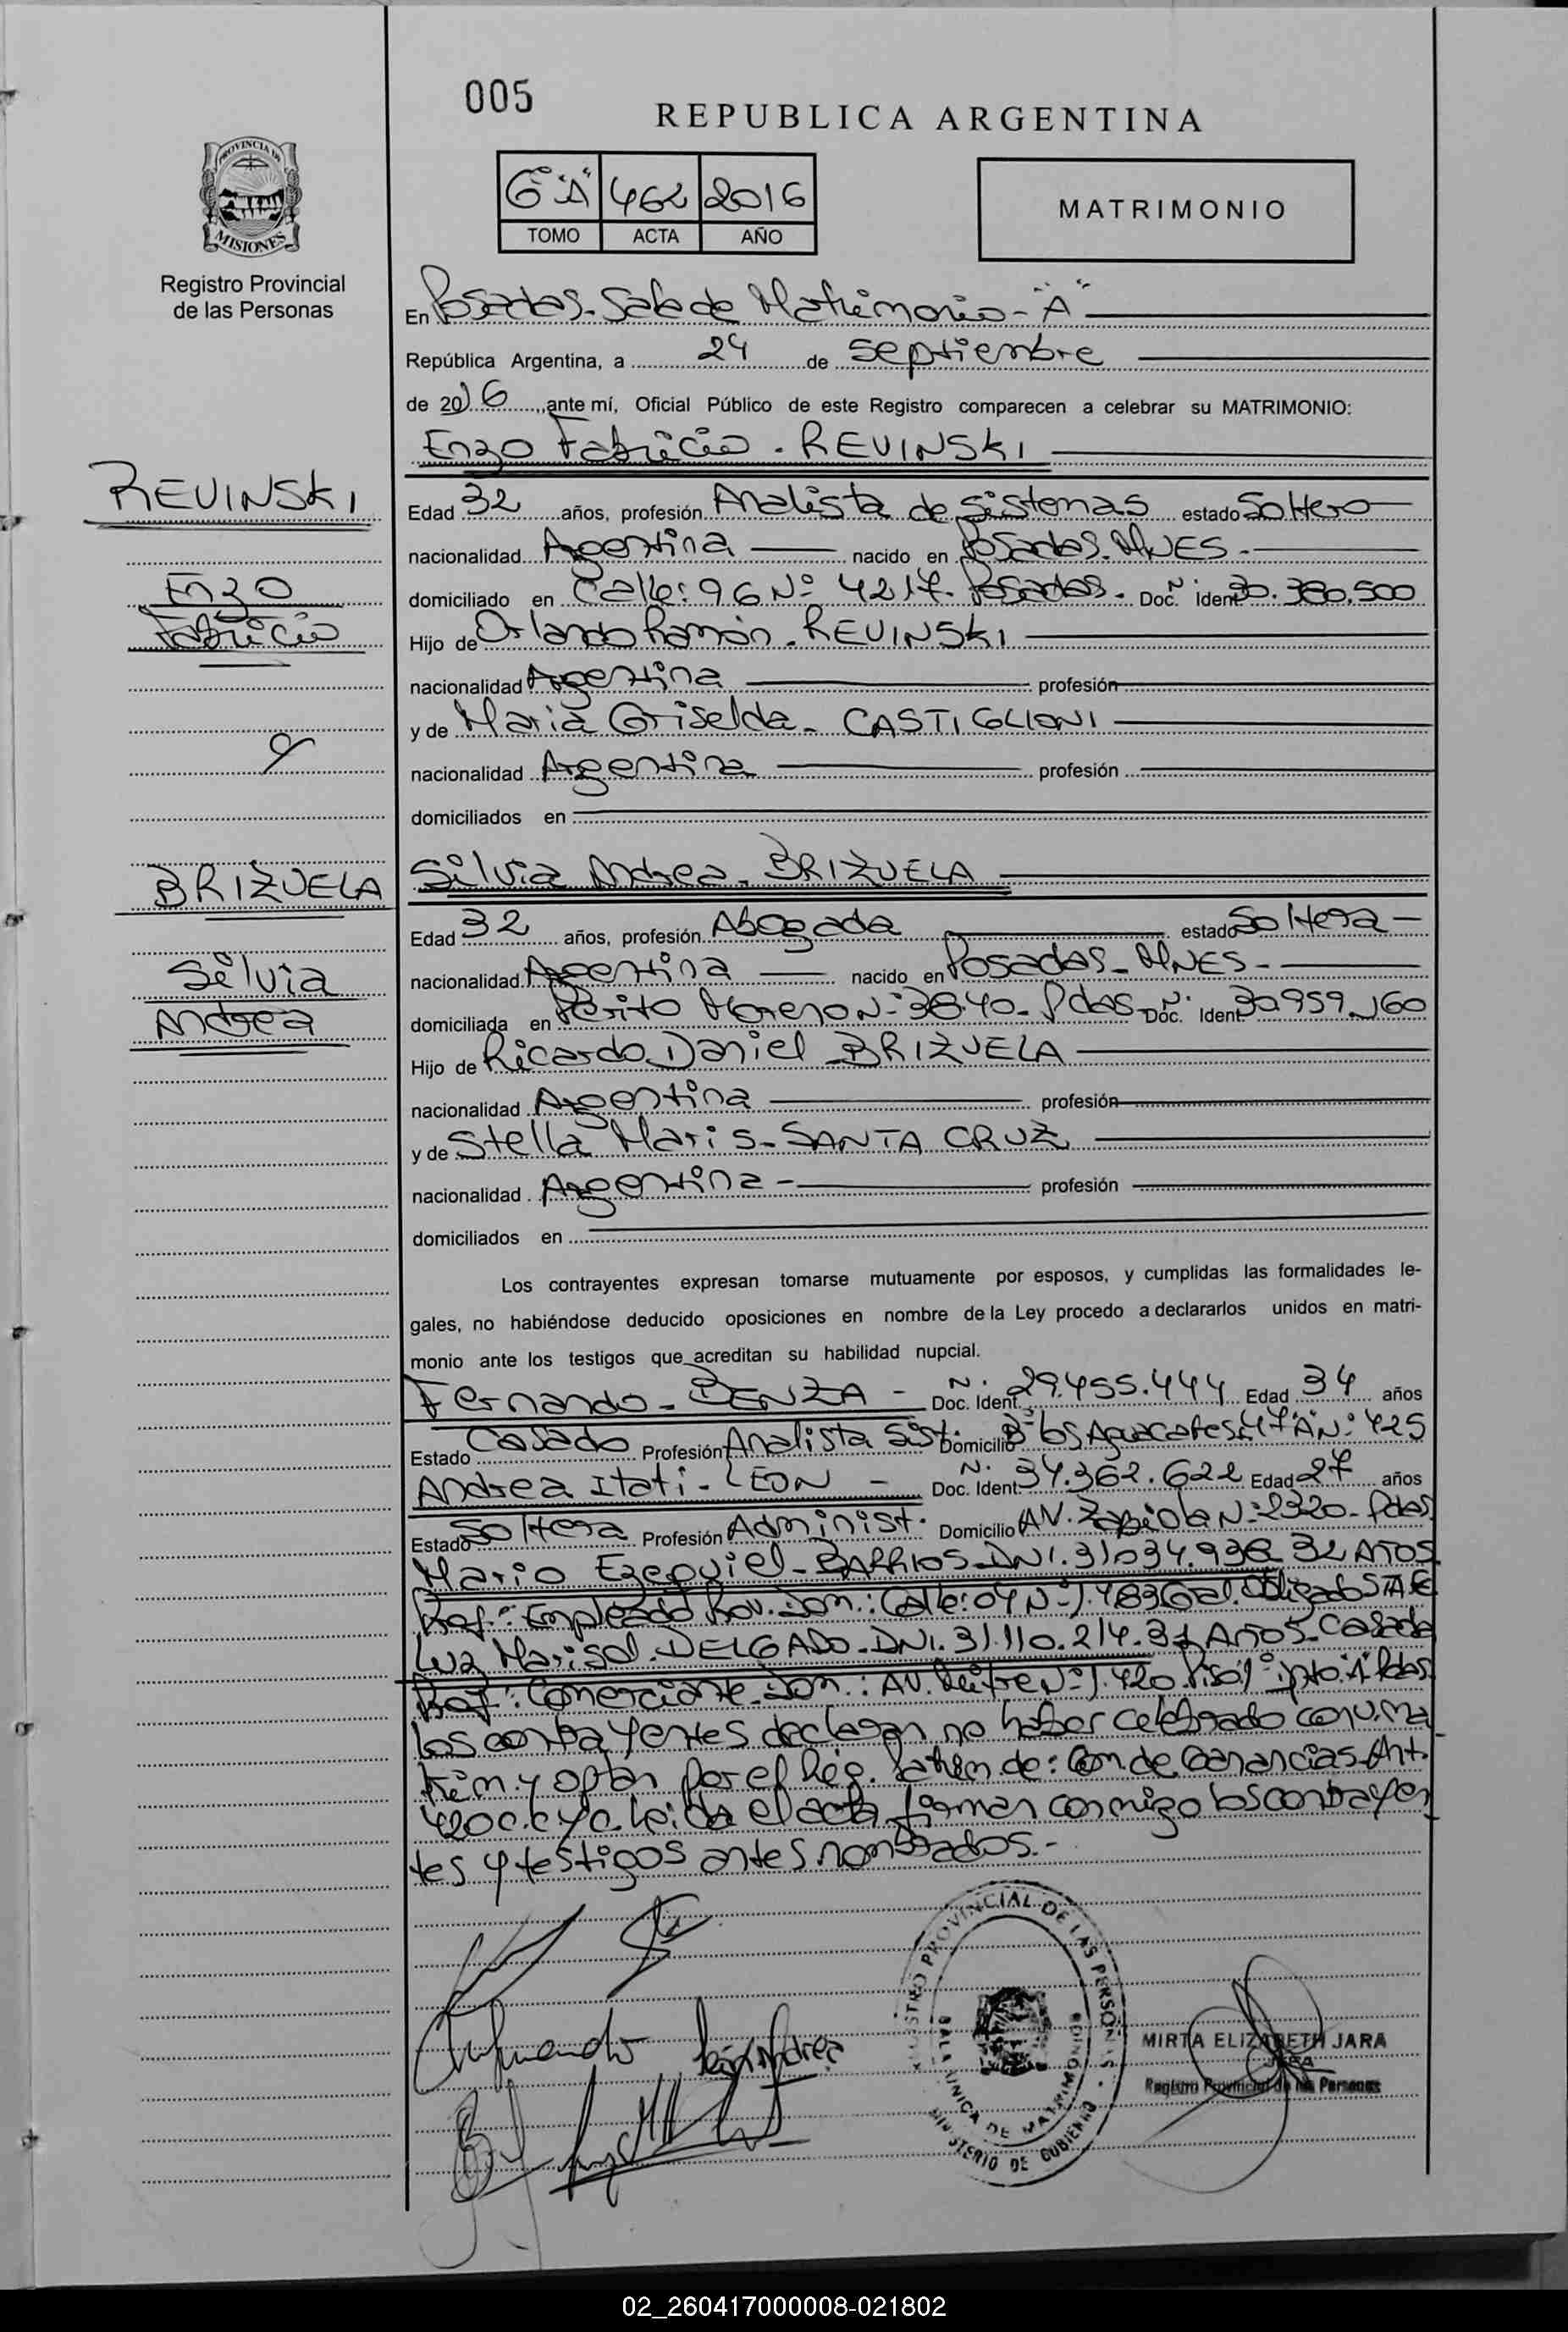 005
REPUBLICA ARGENTINA
6º "A" 462 2016
TOMO ACTA AÑO
MATRIMONIO
PROVINCIA DE MISIONES
Registro Provincial
de las Personas
En Posadas-Sala de Matrimonio-"A"
República Argentina, a 24 de Septiembre
de 2016, ante mí, Oficial Público de este Registro comparecen a celebrar su MATRIMONIO:
Enzo Fabricio - REVINSKI
REVINSKI
Enzo
Fabricio
Edad 32 años, profesión Analista de Sistemas estado Soltero
nacionalidad Argentina nacido en Posadas-MNES.
domiciliado en Calle: 96 Nº 4217. Posadas. Doc. Ident. Nº 30.380.500
Hijo de Orlando Ramón-REVINSKI
nacionalidad Argentina profesión
y de Maria Griselda- CASTIGLIONI
nacionalidad Argentina profesión
domiciliados en
Silvia Andrea-BRIZUELA
BRIZUELA
Silvia
Andrea
Edad 32 años, profesión Abogada estado Soltera
nacionalidad Argentina nacido en Posadas-MNES-
domiciliada en Perito Moreno Nº 3840- Pdas Doc. Ident. Nº 30.959.160
Hijo de Ricardo Daniel-BRIZUELA
nacionalidad Argentina profesión
y de Stella Maris-SANTA CRUZ
nacionalidad Argentina- profesión
domiciliados en
Los contrayentes expresan tomarse mutuamente por esposos, y cumplidas las formalidades le-
gales, no habiéndose deducido oposiciones en nombre de la Ley procedo a declararlos unidos en matri-
monio ante los testigos que acreditan su habilidad nupcial.
Fernando-BENZA - Doc. Ident. Nº 29.455.444 Edad 34 años
Estado Casado Profesión Analista Sist. Domicilio Bº los Aguacates
Andrea Itati-LEON - Doc. Ident. Nº 34.362.622 Edad 27 años
Estado Soltera Profesión Administ. Domicilio AV. Zapiola Nº 2320-Pdas.
Mario Ezequiel-BARRIOS-DNI. 31.034.938 32 AÑOS
Prof: Empleado Prov. Dom.: Calle: 04 Nº
Luz Marisol-DELGADO-DNI. 31.110.214. AÑOS-Casada
Prof: Comerciante-Dom.: AV. Mitre Nº 1.420 Piso 1º Dpto. "A" Pdas.
los contrayentes declaran no haber celebrado conv. ma
trim. y optan por el Rég. Patrim. de: Com. de Ganancias-Art.
420 C.C y C. Leída el acta firman conmigo los contrayen
tes y testigos antes nombrados.-
León Andrea
REGISTRO PROVINCIAL DE LAS PERSONAS
SALA UNICA DE MATRIMONIOS
MINISTERIO DE GOBIERNO
MIRTA ELIZABETH JARA
JEFA
Registro Provincial de las Personas
02_260417000008-021802